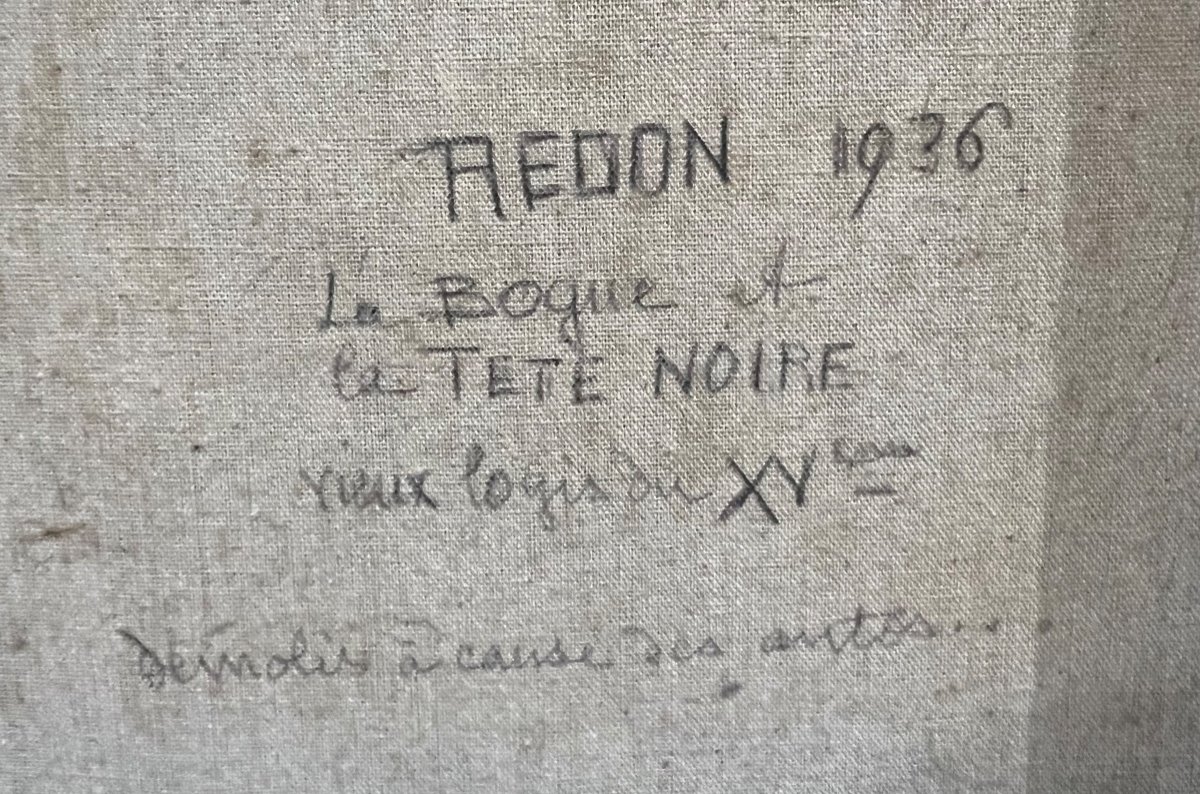 REDON 1936
La Bogue et
la TETE NOIRE
vieux logis du XV
Démolis à cause des autos....